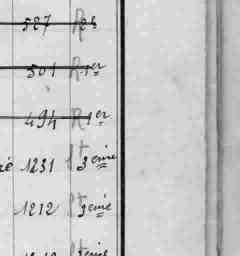 587 R
501 R 1er
494 R 1er
ré 1231 St 3eme
1212 St 3eme
St 3eme